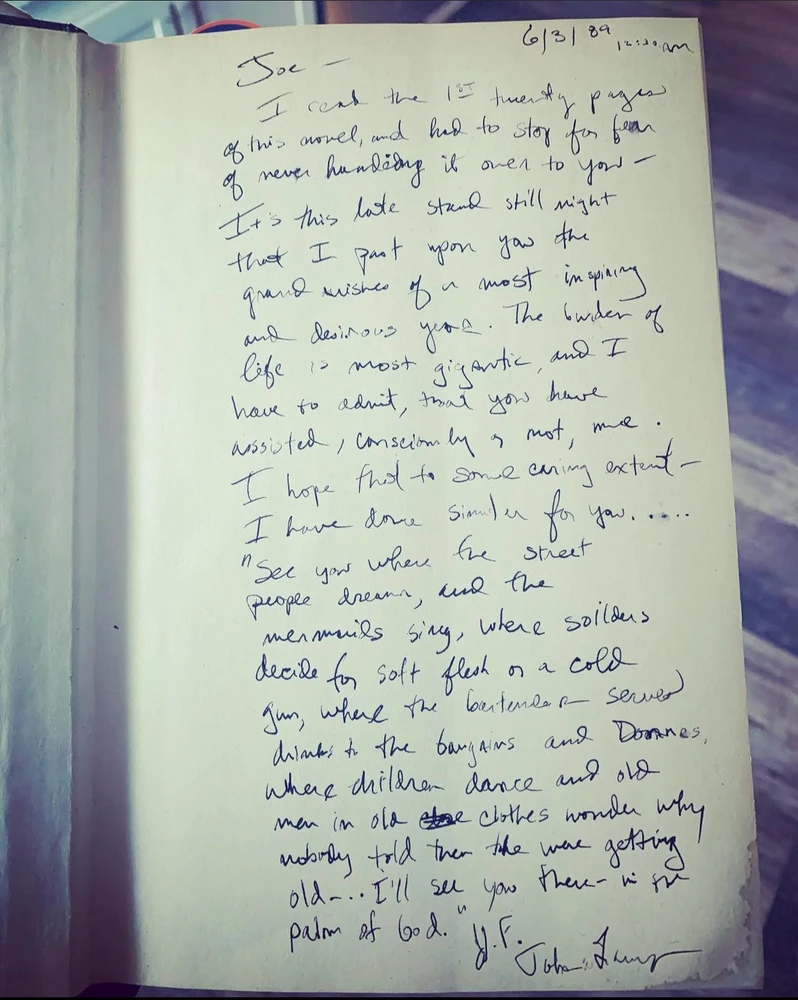 6/3/89 12:30 AM
Joe -
I read the 1ST twenty pages
of this novel, and had to stop for fear
of never handing it over to you -
It's this late stand still night
that I part upon you the
grand wishes of a most inspiring
and desirous year. The burden of
life is most gigantic, and I
have to admit, that you have
assisted, consciously or not, me.
I hope that to some caring extent -
I have done similar for you.....
"See you where the street
people dream, and the
mermaids sing, where soilders
decide for soft flesh or a cold
gun, where the bartender serves
drinks to the bargains and
where children dance and old
men in old clothes wonder why
nobody told them the were getting
old-... I'll see you there - in the
palm of God."
Y.F.
John